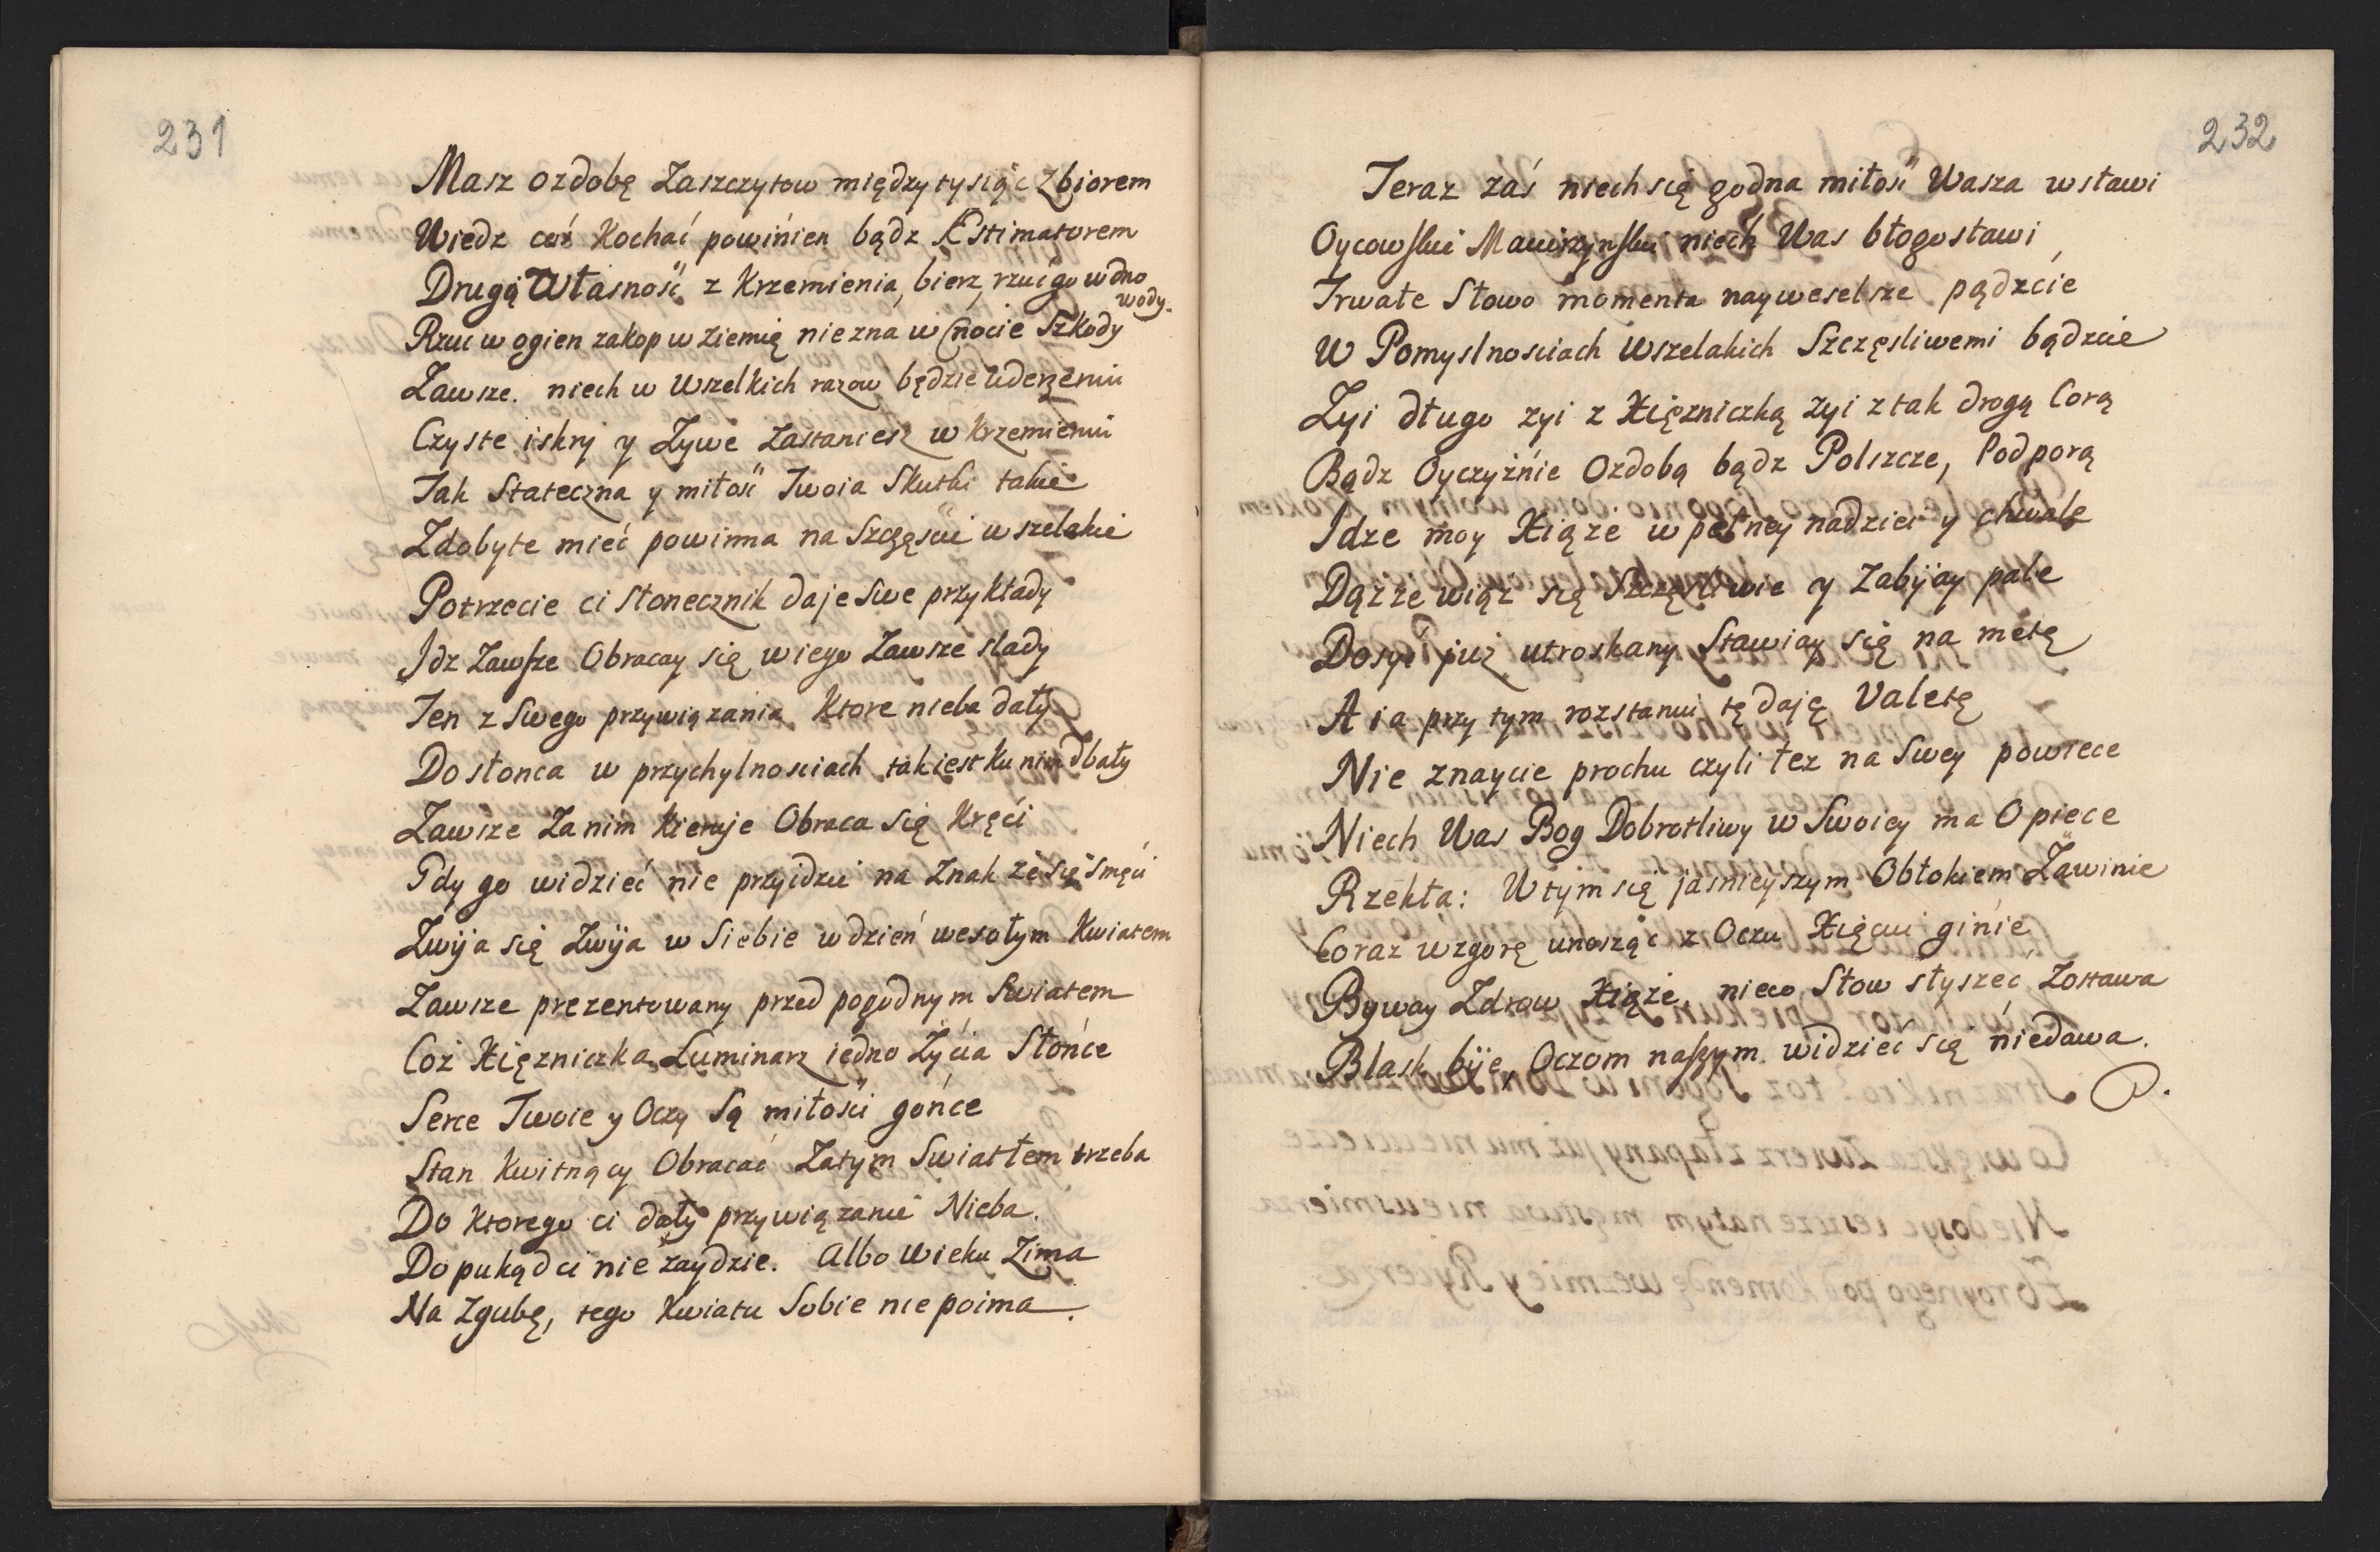 231
Masz ozdobę Zaszczytow między tysiąc Zbiorem
Wiedz coś Kochać powinien bądz Æstimatorem
Drugą Własność z Krzemienia, bierz, rzuć go w dno
wody.
Rzuć w ogien zakop w ziemię nie zna w Cnocie Szkody
Zawsze. niech w Wszelkich razow będzie Uderzeniu
Czyste iskry y Zywe Zastaniesz w Krzemieniu
Jak Stateczna y miłość Twoia Skutki takie
Zdobyte mieć powinna na Szczęście wszelakie
Potrzecie ci Słonecznik daje Swe przykłady
Jdz Zawsze Obracay się w iego Zawsze slady
Ten z Swego przywiązania Ktore nieba dały
Do słonca w przychylnosciach tak iest ku nim dbały
Zawsze Za nim Kieruje Obraca się Kręci
Gdy go widzieć nie przyidzie na Znak że się Smęci
Zwija się Zwija w Siebie w dzień wesołym Kwiatem
Zawsze prezentowany przed pogodnym Swiatem
Coż Xięzniczka Luminarz iedno Zycia Słonce
Serce Twoie y Oczy Są miłości gońce
Stan Kwitnący Obracać Zatym Swiatłem trzeba
Do Ktorego ci dały przywiązanie Nieba.
Do pukąd ci nie zaydzie. Albo Wieku Zima
Na Zgubę, tego Kwiatu Sobie nie poima.
232
Teraz zaś niech się godna miłość Wasza wsławi
Oycowskie Macierzynskie niech Was błogosławi
Trwałe Słowo momenta nayweselsze pądzcie
W Pomyslnosciach Wszelakich Szczęsliwemi bądzcie
Zyi długo zyi z Xięzniczką zyi z tak drogą Corą
Bądz Oyczyźnie Ozdobą bądz Polszcze, Podporą
Jdze moy Xiąże w pełney nadziei y chwale
Dązze wiąż się Szczęsliwie y Zabijay pale
Dosyć już utroskany Stawiay się na metę
A ia przy tym rozstaniu tę daję Valetę
Nie znaycie prochu czyli tez na Swey powiece
Niech Was Bog Dobrotliwy w Swoiey ma Opiece
Rzekła: W tym się jasnieyszym Obłokiem Zawinie
Coraz wzgorę unosząc z Oczu Xięciu ginie
Byway Zdrow Xiąże, nieco Słow słyszeć Zostawa
Blask bije, Oczom naszym widzieć się niedawa.